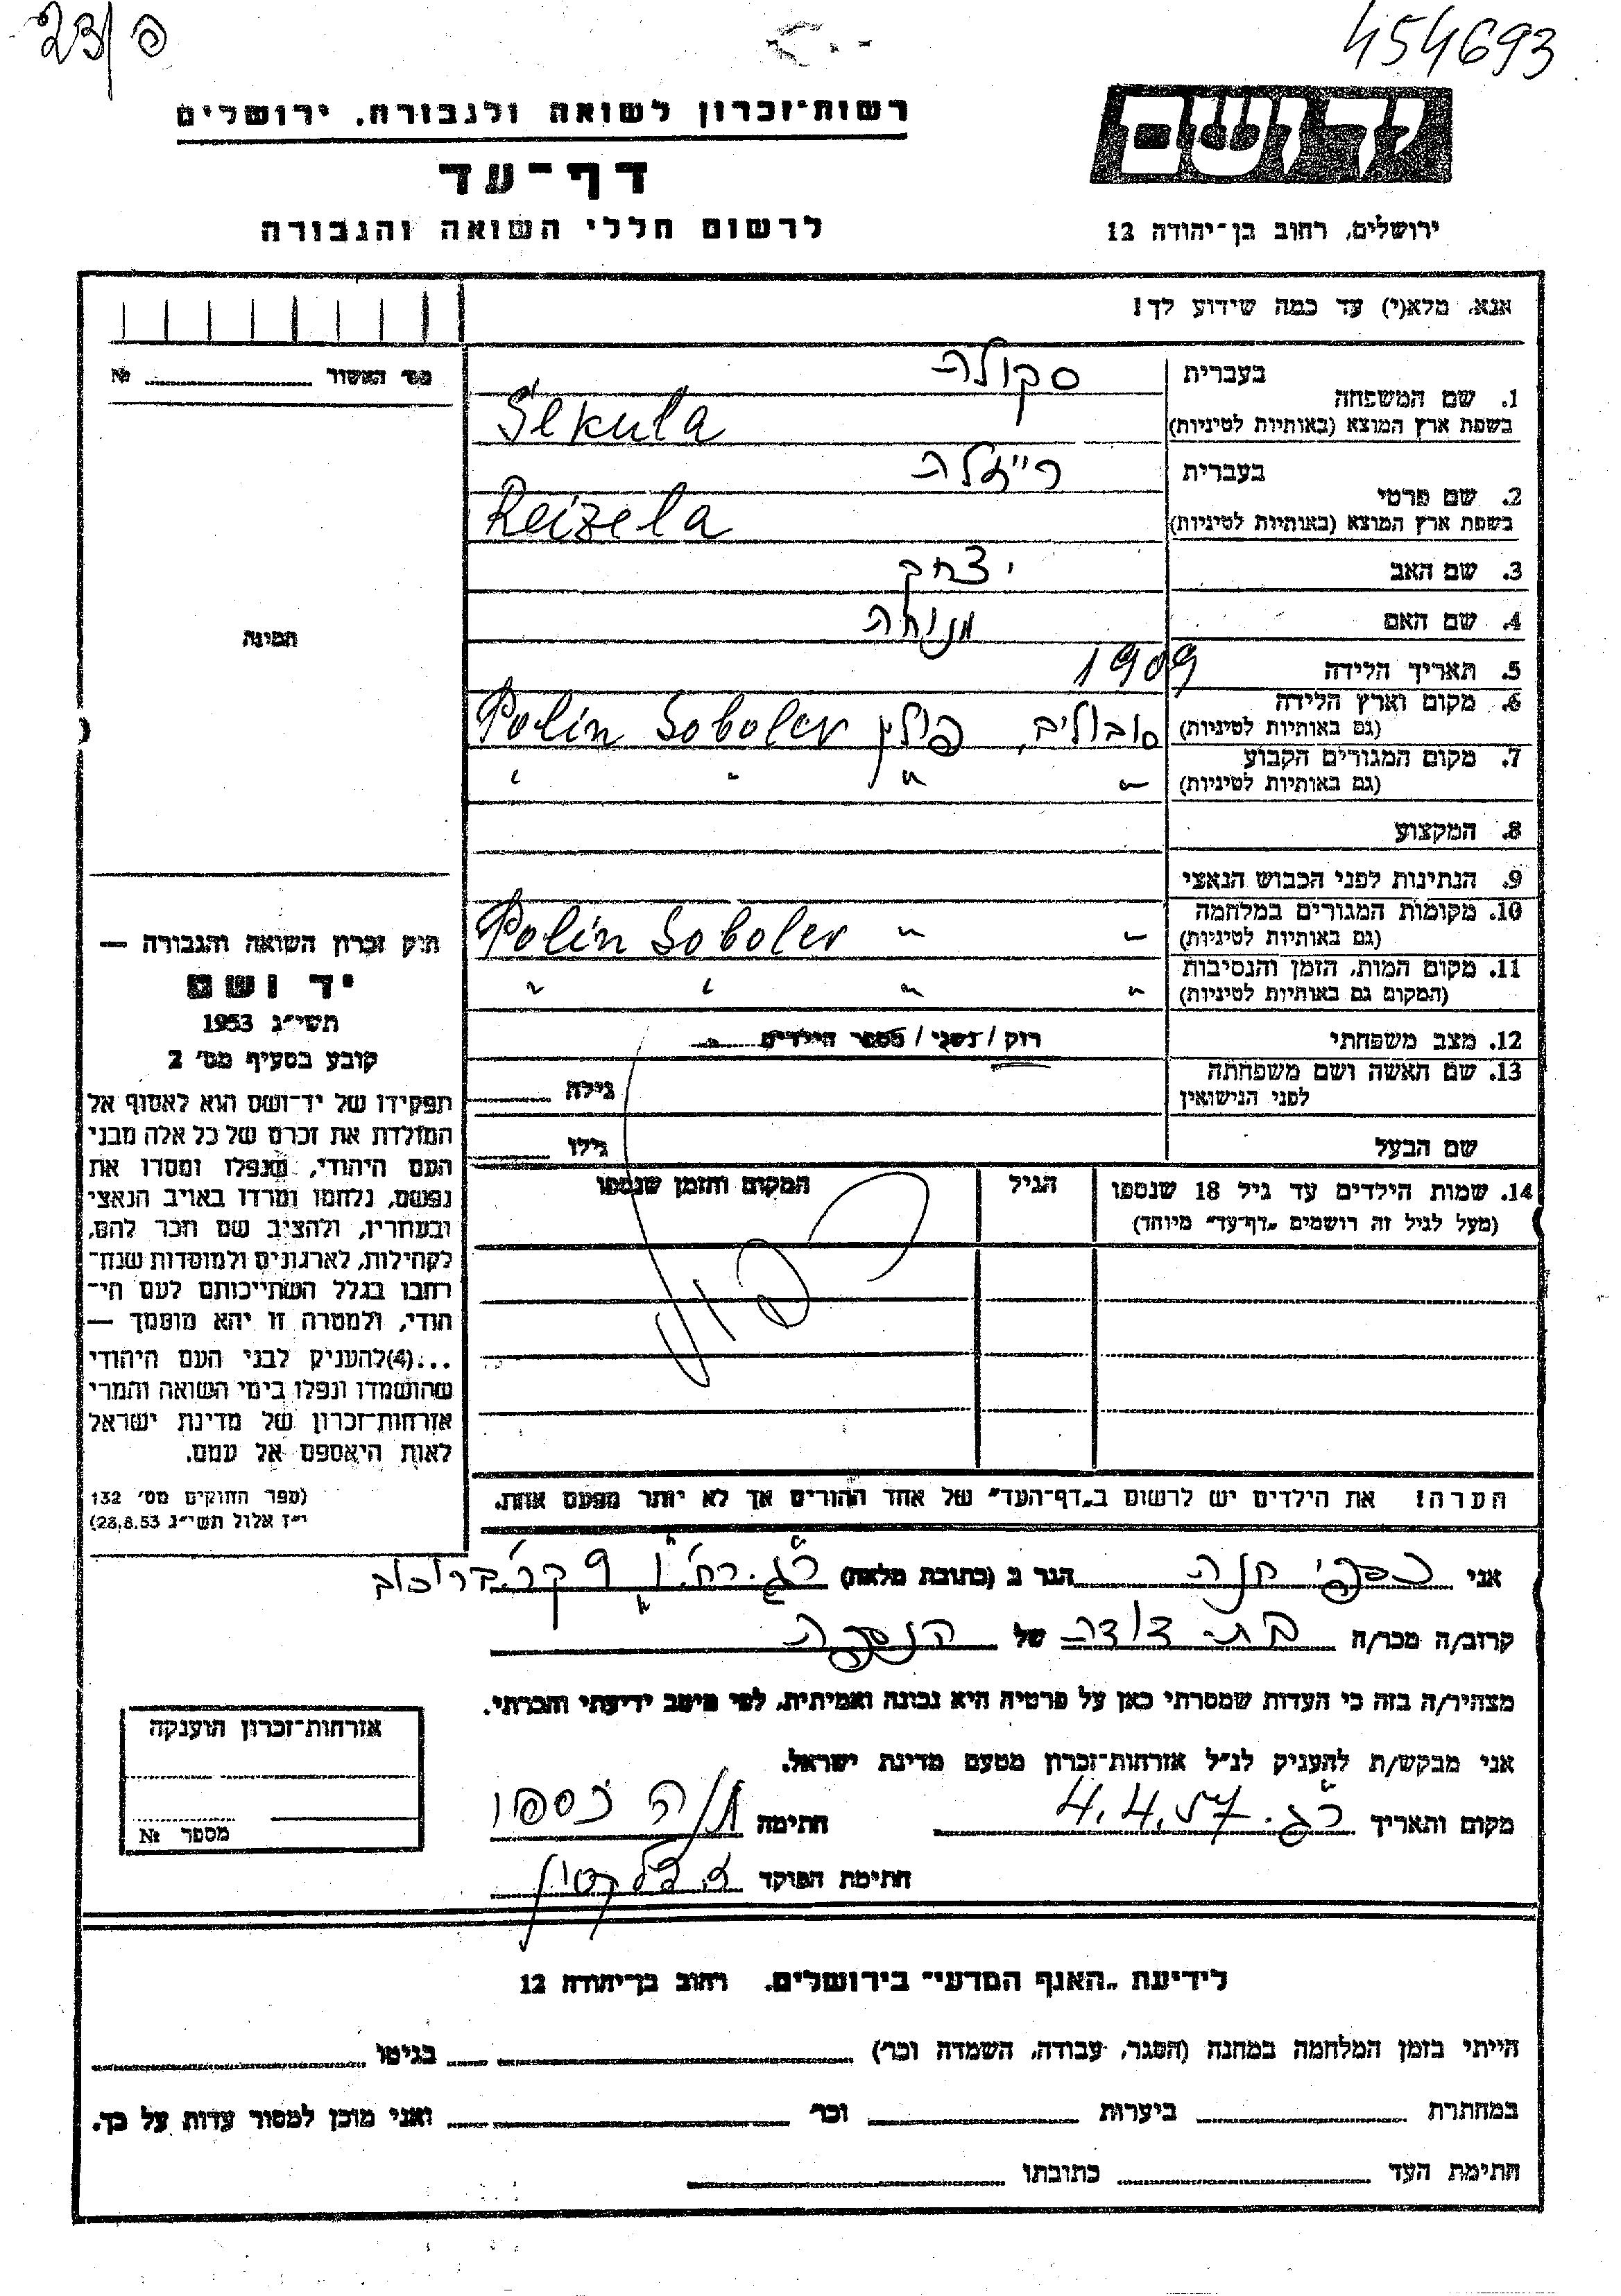 23/פ
454693
רשות-זכרון לשואה ולגבורה, ירושלים
דף-עד
לרשום חללי השואה והגבורה
יד ושם
ירושלים, רחוב בן-יהודה 12
אנא, מלא(י) עד כמה שידוע לך!
מס' האשור № 
בעברית סקולה
1. שם המשפחה
בשפת ארץ המוצא (באותיות לטיניות) Sekula
בעברית רייזלה
2. שם פרטי
בשפת ארץ המוצא (באותיות לטיניות) Reizela
3. שם האב יצחק
4. שם האם מנוחה
5. תאריך הלידה 1909
6. מקום וארץ הלידה
(גם באותיות לטיניות) סובוליב, פולין Polin Soboler
7. מקום המגורים הקבוע
(גם באותיות לטיניות) " " " "
8. המקצוע
9. הנתינות לפני הכבוש הנאצי
10. מקומות המגורים במלחמה
(גם באותיות לטיניות) " " Polin Soboler
11. מקום המות, הזמן והנסיבות
(המקום גם באותיות לטיניות) " " " "
12. מצב משפחתי רוק / נשוי / מספר הילדים
13. שם האשה ושם משפחתה
לפני הנישואין גילה
שם הבעל גילו
14. שמות הילדים עד גיל 18 שנספו
(מעל לגיל זה רושמים "דף-עד" מיוחד)
הגיל
המקום והזמן שנספו
הערה! את הילדים יש לרשום ב"דף-העד" של אחד ההורים אך לא יותר מפעם אחת.
תמונה
חוק זכרון השואה והגבורה —
יד ושם
תשי"ג 1953
קובע בסעיף מס' 2
תפקידו של יד-ושם הוא לאסוף אל
המולדת את זכרם של כל אלה מבני
העם היהודי, שנפלו ומסרו את
נפשם, נלחמו ומרדו באויב הנאצי
ובעוזריו, ולהציב שם וזכר להם,
לקהילות, לארגונים ולמוסדות שנח-
רבו בגלל השתייכותם לעם הי-
הודי, ולמטרה זו יהא מוסמך —
...(4)להעניק לבני העם היהודי
שהושמדו ונפלו בימי השואה והמרי
אזרחות-זכרון של מדינת ישראל
לאות היאספם אל עמם.
(ספר החוקים מס' 132
י"ז אלול תשי"ג 28.8.53)
אני כספי חנה הגר ב (כתובת מלאה) ר"ג. רח' ו' 9 קר. ברוכוב
קרוב/ה מכר/ה בת דודה של הנספה
מצהיר/ה בזה כי העדות שמסרתי כאן על פרטיה היא נכונה ואמיתית, לפי מיטב ידיעתי והכרתי.
אני מבקש/ת להעניק לנ"ל אזרחות-זכרון מטעם מדינת ישראל.
מקום ותאריך ר"ג. 4.4.57 חתימה חנה כספי
חתימת הפוקד
אזרחות-זכרון הוענקה
מספר №
לידיעת "האגף המדעי" בירושלים, רחוב בן-יהודה 12
הייתי בזמן המלחמה במחנה (הסגר, עבודה, השמדה וכו') בגיטו
במחתרת ביערות וכו' ואני מוכן למסור עדות על כך.
חתימת העד כתובתו